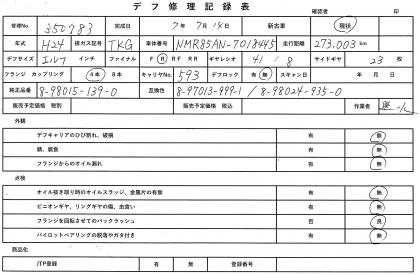 デフ修理記録表
確認者 印
管理No. 350783 完成日 7年 7月 14日 新古車 現状
年式 H24 排ガス記号 TKG 車体番号 NMR85AN-7018445 走行距離 273,003 km
デフサイズ エルフ インチ ファイナル F R RF RR ギヤレシオ 41 / 8 サイドギヤ 23 枚
フランジ カップリング 4本 8本 キャリヤNo. 593 デフロック 有 無 スキャン日 年 月 日
純正品番 8-98015-139-0 互換性 8-97013-999-1 / 8-98024-935-0
販売予定価格 税別 販売予定価格 税込 作業者
外観
デフキャリアのひび割れ、破損 有 無
錆、腐食 有 無
フランジからのオイル漏れ 有 無
点検
オイル抜き取り時のオイルスラッジ、金属片の有無 有 無
ピニオンギヤ、リングギヤの傷、虫食い 有 無
フランジを回転させてのバックラッシュ 否 良
パイロットベアリングの脱落やガタ付き 有 無
商品化
JTP登録 有 無 登録番号